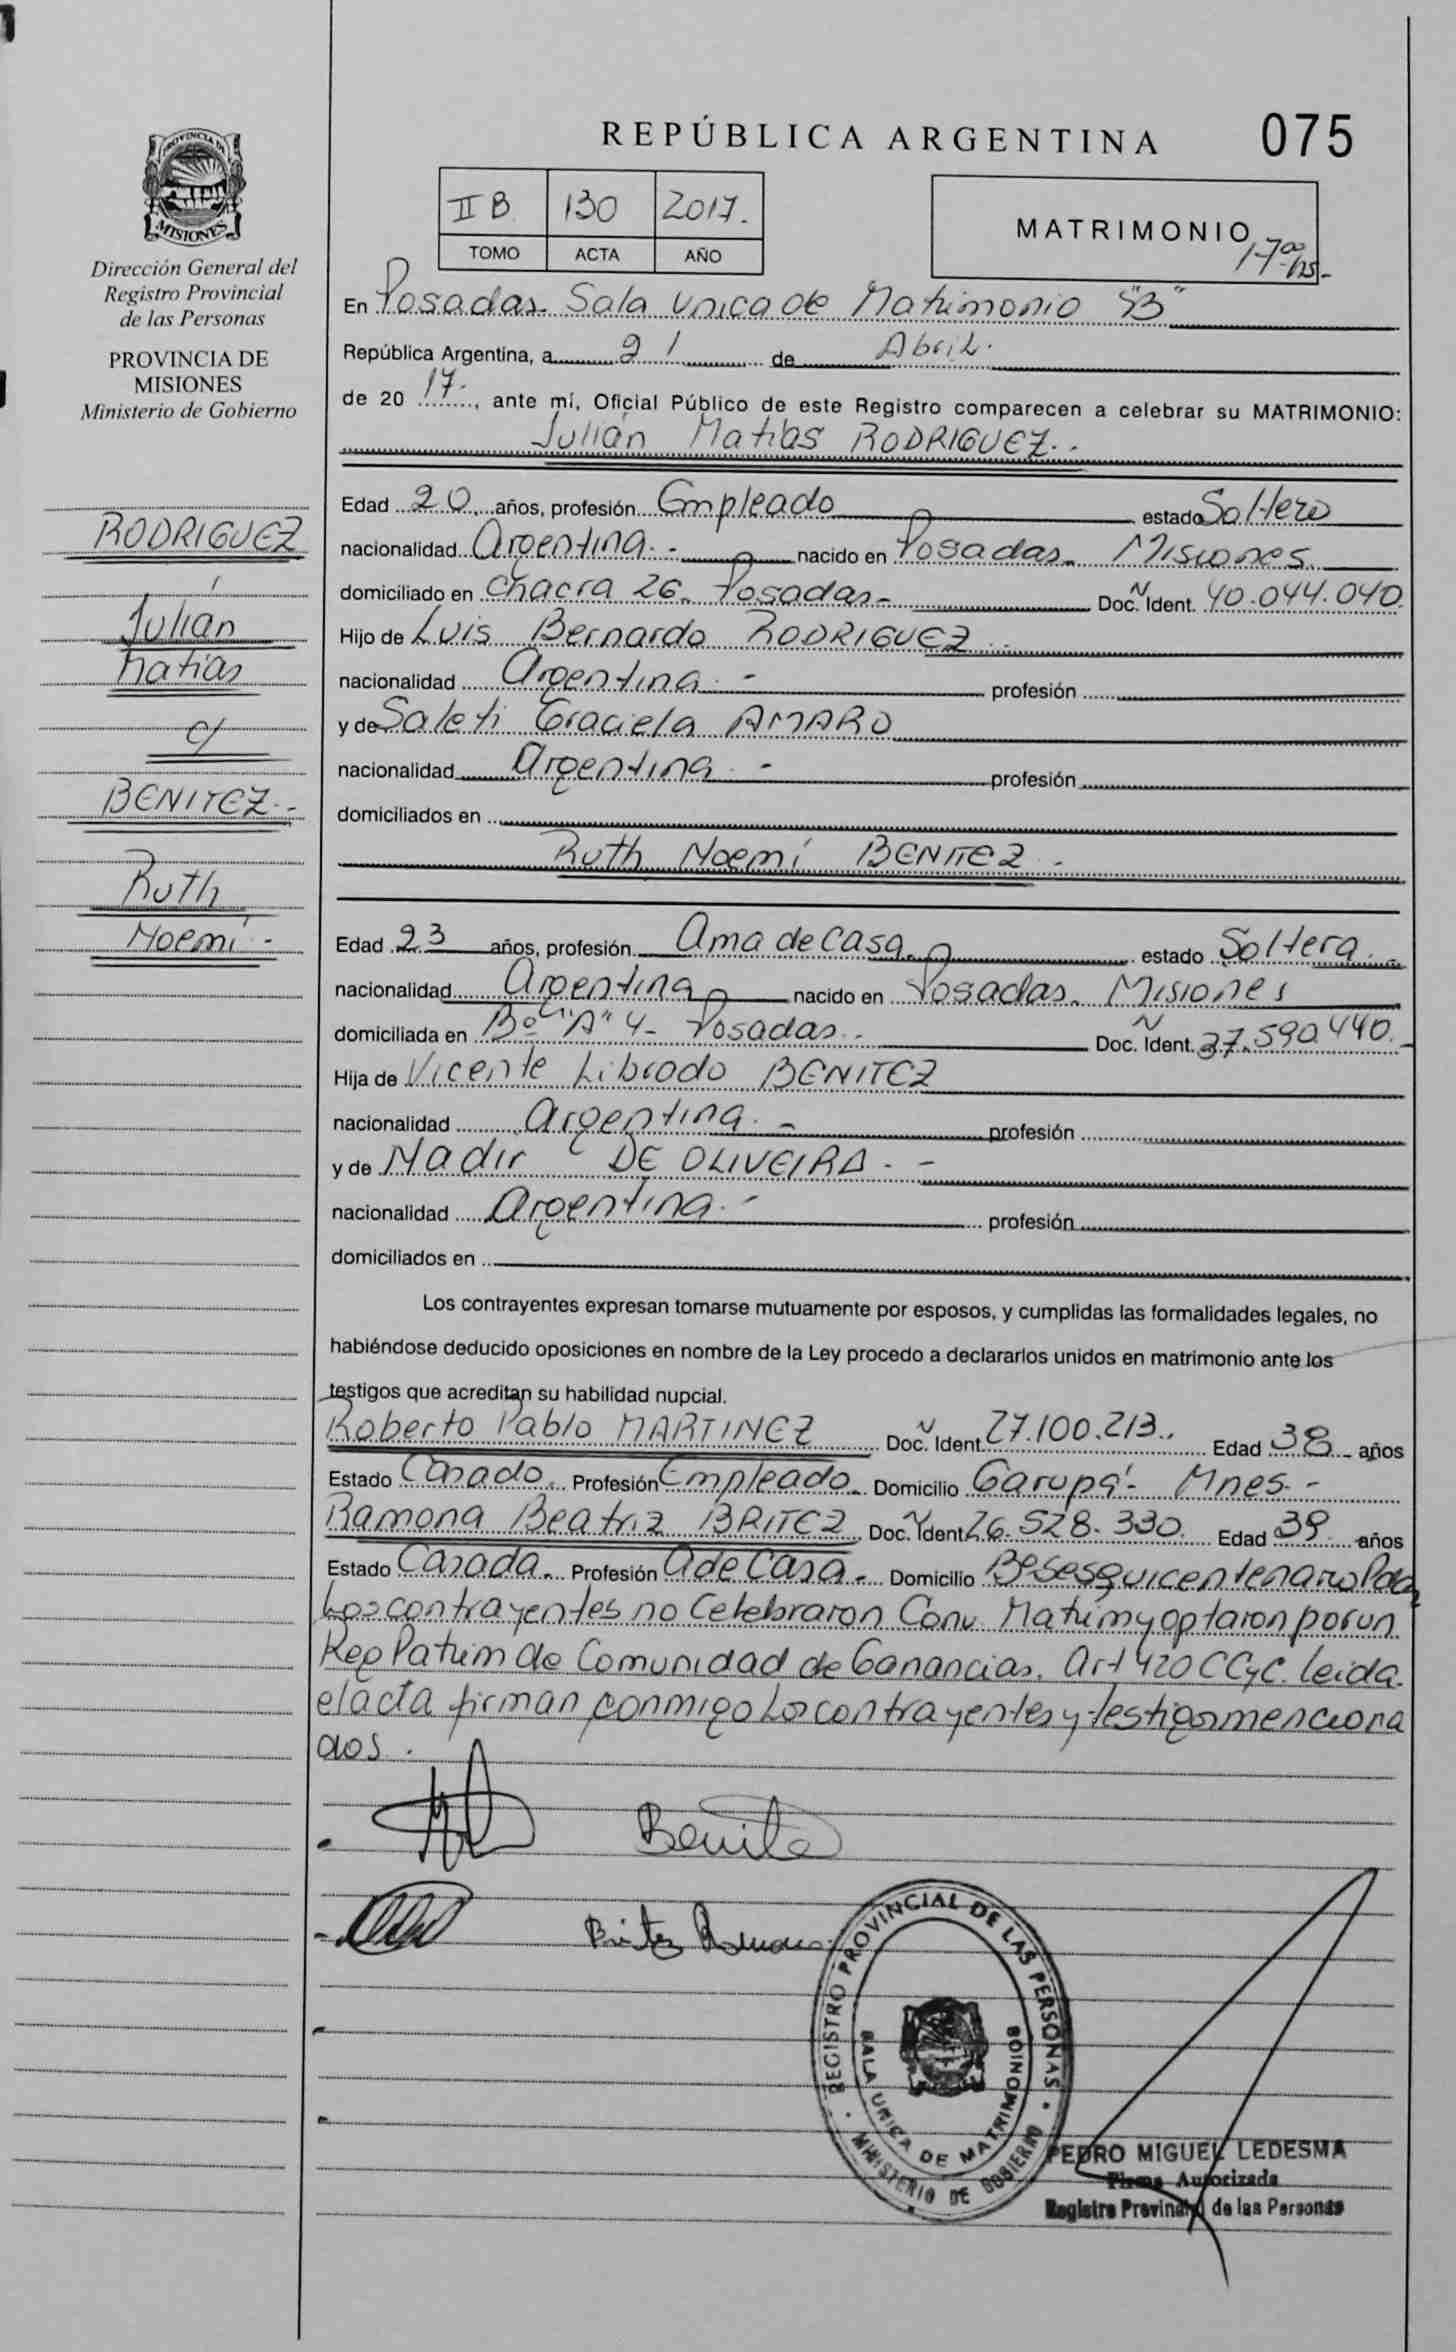 REPÚBLICA ARGENTINA
075
II B 130 2017.
TOMO ACTA AÑO
MATRIMONIO
17 00 hs-
MISIONES
Dirección General del
Registro Provincial
de las Personas
PROVINCIA DE
MISIONES
Ministerio de Gobierno
RODRIGUEZ
Julián
Matías
c/
BENITEZ.-
Ruth
Noemí.-
En Posadas. Sala Unica de Matrimonio "B"
República Argentina, a 21 de Abril.
de 20 17., ante mí, Oficial Público de este Registro comparecen a celebrar su MATRIMONIO:
Julián Matías RODRIGUEZ.-
Edad 20 años, profesión Empleado estado Soltero
nacionalidad Argentina.- nacido en Posadas. Misiones
domiciliado en Chacra 26. Posadas- Doc. Ident. 40.044.040.
Hijo de Luis Bernardo RODRIGUEZ.-
nacionalidad Argentina.- profesión
y de Saleti Graciela AMARO
nacionalidad Argentina.- profesión
domiciliados en
Ruth Noemí BENITEZ.-
Edad 23 años, profesión Ama de Casa. estado Soltera.-
nacionalidad Argentina nacido en Posadas. Misiones
domiciliada en Bº "A" 4- Posadas.- Doc. Ident. 37.590.440.-
Hija de Vicente Librado BENITEZ
nacionalidad Argentina.- profesión
y de Nadir DE OLIVEIRA.-
nacionalidad Argentina.- profesión
domiciliados en
Los contrayentes expresan tomarse mutuamente por esposos, y cumplidas las formalidades legales, no
habiéndose deducido oposiciones en nombre de la Ley procedo a declararlos unidos en matrimonio ante los
testigos que acreditan su habilidad nupcial.
Roberto Pablo MARTINEZ Doc. Ident. 27.100.213.. Edad 38 años
Estado Casado. Profesión Empleado. Domicilio Garupá- Mnes.-
Ramona Beatriz BRITEZ Doc. Ident. 26.528.330. Edad 39 años
Estado Casada. Profesión A de Casa. Domicilio Bº Sesquicentenario Pdas
Los contrayentes no Celebraron Conv. Matrim y optaron por un
Reg Patrim de Comunidad de Ganancias. Art 420 CCyC. leida
el acta firman conmigo Los contrayentes y testigos menciona
dos.
Benitez
Britez Ramona
REGISTRO PROVINCIAL DE LAS PERSONAS
SALA UNICA DE MATRIMONIOS
MINISTERIO DE GOBIERNO
PEDRO MIGUEL LEDESMA
Firma Autorizada
Registro Provincial de las Personas